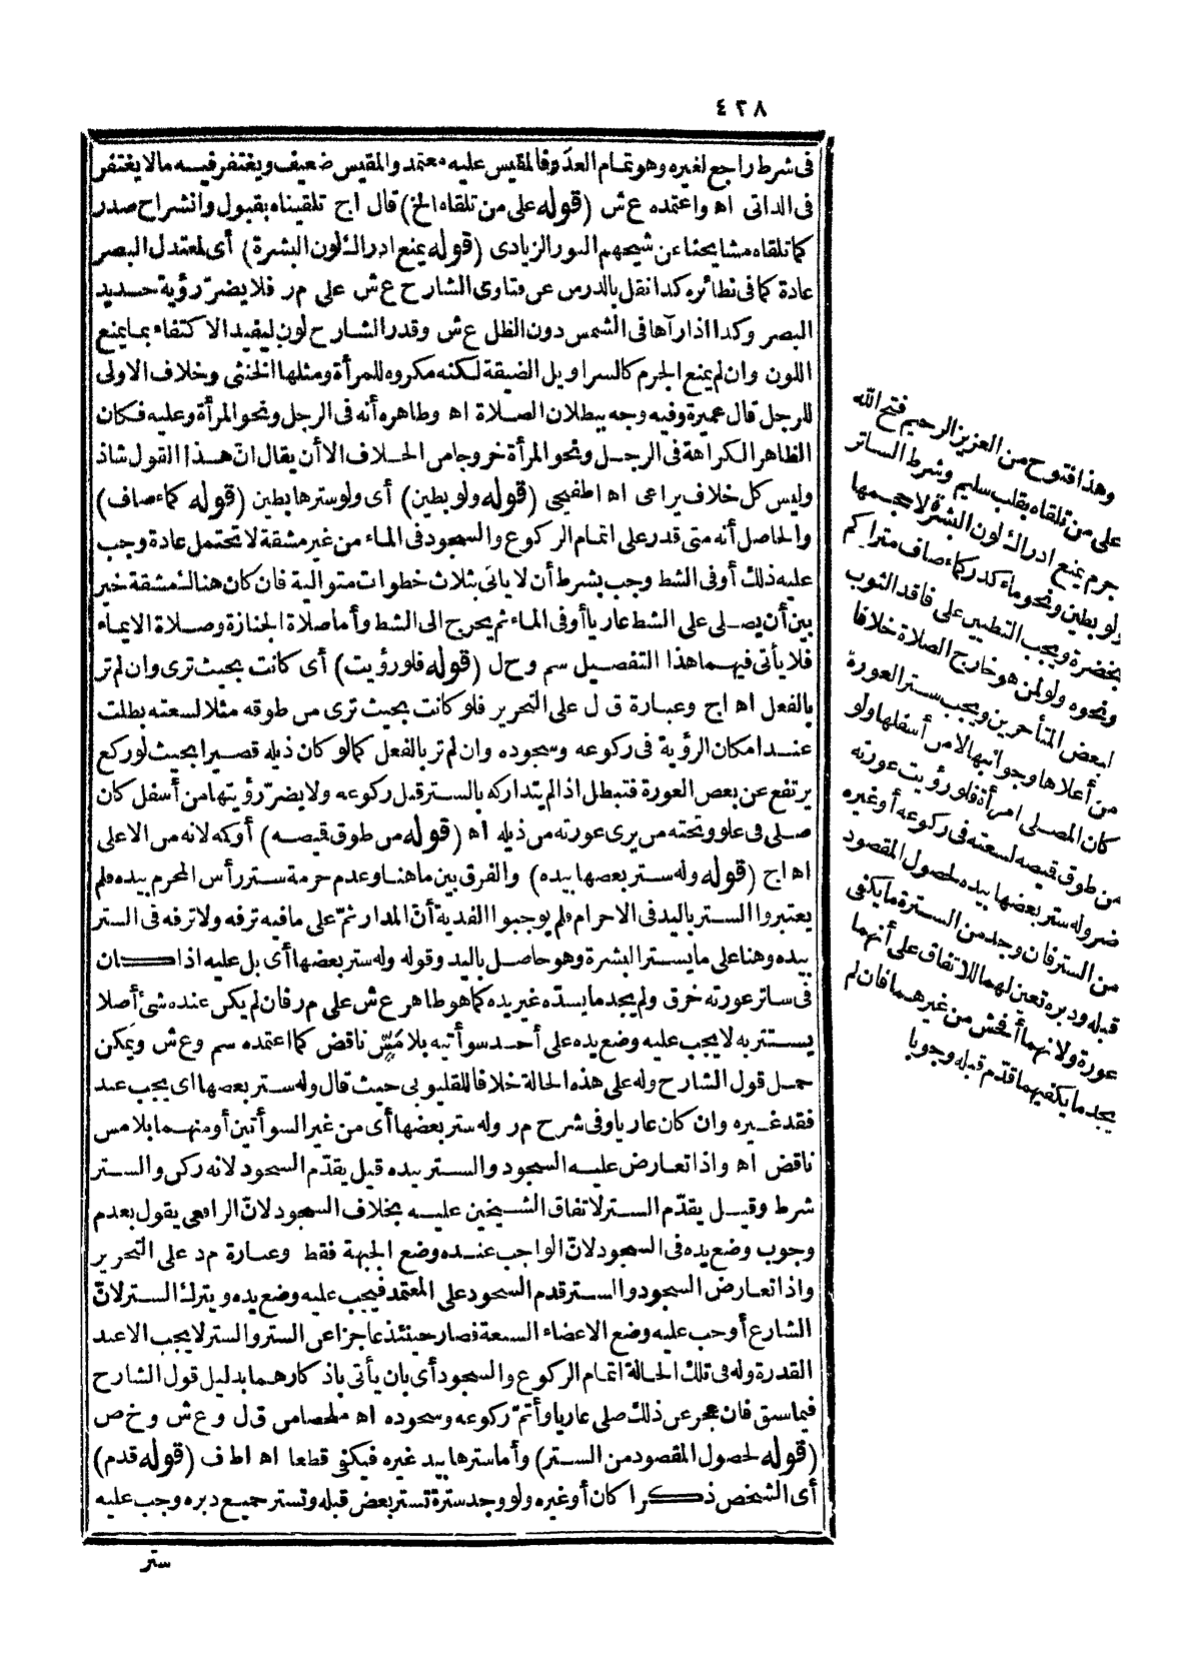 ٤٢٨
فى شرط راجع لغيره وهو تمام العدد فالمقيس عليه معتمد والمقيس ضعيف ويغتفر فيه مالا يغتفر
فى الذاتى اه واعتمده ع ش (قوله على من تلقاه الخ) قال اج تلقيناه بقبول وانشراح صدر
كما تلقاه مشايخنا عن شيخهم النور الزيادى (قوله يمنع ادراك لون البشرة) أى لمعتدل البصر
عادة كما فى نظائره كذا نقل بالدرس عن فتاوى الشارح ع ش على م ر فلا يضرّ رؤية حديد
البصر وكذا اذا رآها فى الشمس دون الظل ع ش وقدر الشارح لون ليفيد الاكتفاء بما يمنع
اللون وان لم يمنع الجرم كالسراويل الضيقة لكنه مكروه للمرأة ومثلها الخنثى وخلاف الاولى
للرجل قال عميرة وفيه وجه ببطلان الصلاة اه وظاهره أنه فى الرجل ونحو المرأة وعليه فكان
الظاهر الكراهة فى الرجل ونحو المرأة خروجا من الخلاف الا أن يقال انّ هذا القول شاذ
وليس كل خلاف يراعى اه اطفيحى (قوله ولو بطين) أى ولو سترها بطين (قوله كماء صاف)
والحاصل أنه متى قدر على اتمام الركوع والسجود فى الماء من غير مشقة لا تحتمل عادة وجب
عليه ذلك أو فى الشط وجب بشرط أن لا يأتى بثلاث خطوات متوالية فان كان هناك مشقة خير
بين أن يصلى على الشط عاريا أو فى الماء ثم يخرج الى الشط وأما صلاة الجنازة وصلاة الايماء
فلا يأتى فيهما هذا التفصيل سم وح ل (قوله فلو رؤيت) أى كانت بحيث ترى وان لم تر
بالفعل اه اج وعبارة ق ل على التحرير فلو كانت بحيث ترى من طوقه مثلا لسعته بطلت
عند امكان الرؤية فى ركوعه وسجوده وان لم تر بالفعل كما لو كان ذيله قصيرا بحيث لو ركع
يرتفع عن بعض العورة فتبطل اذا لم يتداركه بالستر قبل ركوعه ولا يضرّ رؤيتها من أسفل كان
صلى فى علو وتحته من يرى عورته من ذيله اه (قوله من طوق قيصه) أو كمه لانه من الاعلى
اه اج (قوله وله ستر بعضها بيده) والفرق بين ما هنا وعدم حرمة ستر رأس المحرم بيده فلم
يعتبروا الستر باليد فى الاحرام فلم يوجبوا الفدية أنّ المدار ثمّ على ما فيه ترفه ولا ترفه فى الستر
بيده وهنا على ما يستر البشرة وهو حاصل باليد وقوله وله ستر بعضها أى بل عليه اذا كان
فى ساتر عورته خرق ولم يجد ما يسدّه غير يده كما هو ظاهر ع ش على م ر فان لم يكن عنده شئ أصلا
يستتر به لا يجب عليه وضع يده على أحد سوأتيه بلا مسّ ناقض كما اعتمده سم وع ش ويمكن
حمل قول الشارح وله على هذه الحالة خلافا للقليوبى حيث قال وله ستر بعضها اى يجب عند
فقد غيره وان كان عاريا وفى شرح م ر وله ستر بعضها أى من غير السوأتين أو منهما بلا مس
ناقض اه واذا تعارض عليه السجود والستر بيده قيل يقدّم السجود لانه ركن والستر
شرط وقيل يقدّم الستر لاتفاق الشيخين عليه بخلاف السجود لانّ الرافعى يقول بعدم
وجوب وضع يده فى السجود لانّ الواجب عنده وضع الجبهة فقط وعبارة م د على التحرير
واذا تعارض السجود والستر قدم السجود على المعتمد فيجب عليه وضع يده ويترك الستر لانّ
الشارع أوجب عليه وضع الاعضاء السبعة فصار حينئذ عاجزا عن الستر والستر لا يجب الا عند
القدرة وله فى تلك الحالة اتمام الركوع والسجود أى بان يأتى باذكارهما بدليل قول الشارح
فيما سبق فان عجز عن ذلك صلى عاريا وأتمّ ركوعه وسجوده اه ملخصا من ق ل وع ش وخ ص
(قوله لحصول المقصود من الستر) وأما سترها بيد غيره فيكفى قطعا اه اط ف (قوله قدم)
أى الشخص ذكرا كان أو غيره ولو وجد سترة تستر بعض قبله وتستر جميع دبره وجب عليه
ستر
وهذا فتوح من العزيز الرحيم فتح الله
على من تلقاه بقلب سليم وشرط الساتر
جرم يمنع ادراك لون البشرة لا حجمها
ولو بطين ونحو ماء كدر كماء صاف متراكم
بخضرة ويجب التطيين على فاقد الثوب
ونحوه ولو لمن هو خارج الصلاة خلافا
لبعض المتأخرين ويجب ستر العورة
من أعلاها وجوانبها لا من أسفلها ولو
كان المصلى امرأة فلو رؤيت عورته
من طوق قيصه لسعته فى ركوعه أو غيره
ضر وله ستر بعضها بيده لحصول المقصود
من الستر فان وجد من السترة ما يكفى
قبله ودبره تعين لهما للاتفاق على أنهما
عورة ولانهما أفحش من غيرهما فان لم
يجد ما يكفيهما قدّم قبله وجوبا